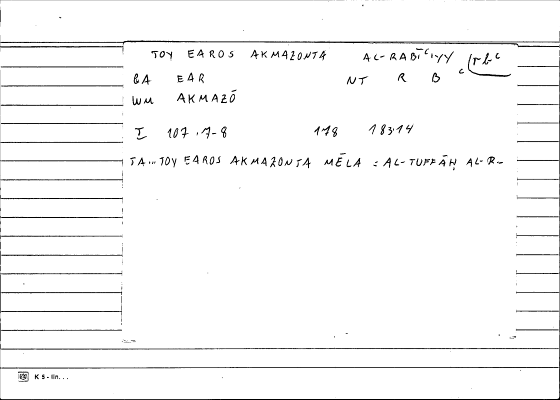 TOY EAROS AKMAZONTA AL-RABĪʿIYY rbʿ
GA EAR NT R B ʿ
WM AKMAZŌ
I 107.7-8 178 183.14
TA...TOY EAROS AKMAZONTA MĒLA = AL-TUFFĀḤ AL-R...
K 5 - lin. . .